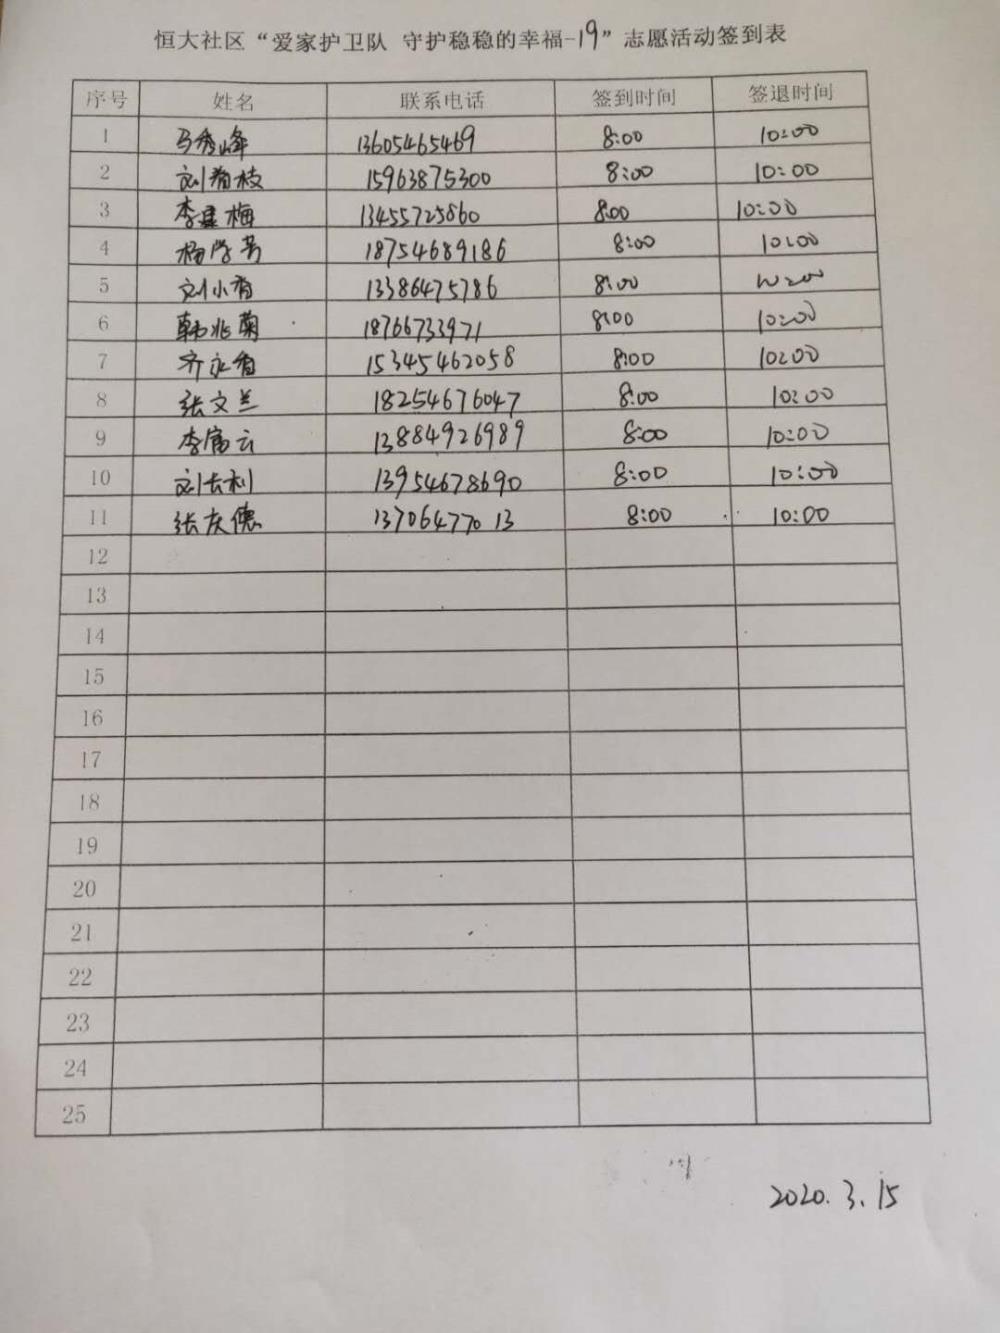 恒大社区“爱家护卫队 守护稳稳的幸福-19”志愿活动签到表
序号 姓名 联系电话 签到时间 签退时间
1 马秀峰 13605465469 8:00 10:00
2 刘着枝 15963875300 8:00 10:00
3 李建梅 13455725860 8:00 10:00
4 杨学芳 18754689186 8:00 10:00
5 刘小有 13386475786 8:00 10:00
6 韩兆菊 18766733971 8:00 10:00
7 齐永香 15345462058 8:00 10:00
8 张文兰 18254676047 8:00 10:00
9 李富云 13884926989 8:00 10:00
10 刘长利 13954678690 8:00 10:00
11 张友德 13706477013 8:00 10:00
12
13
14
15
16
17
18
19
20
21
22
23
24
25
2020.3.15